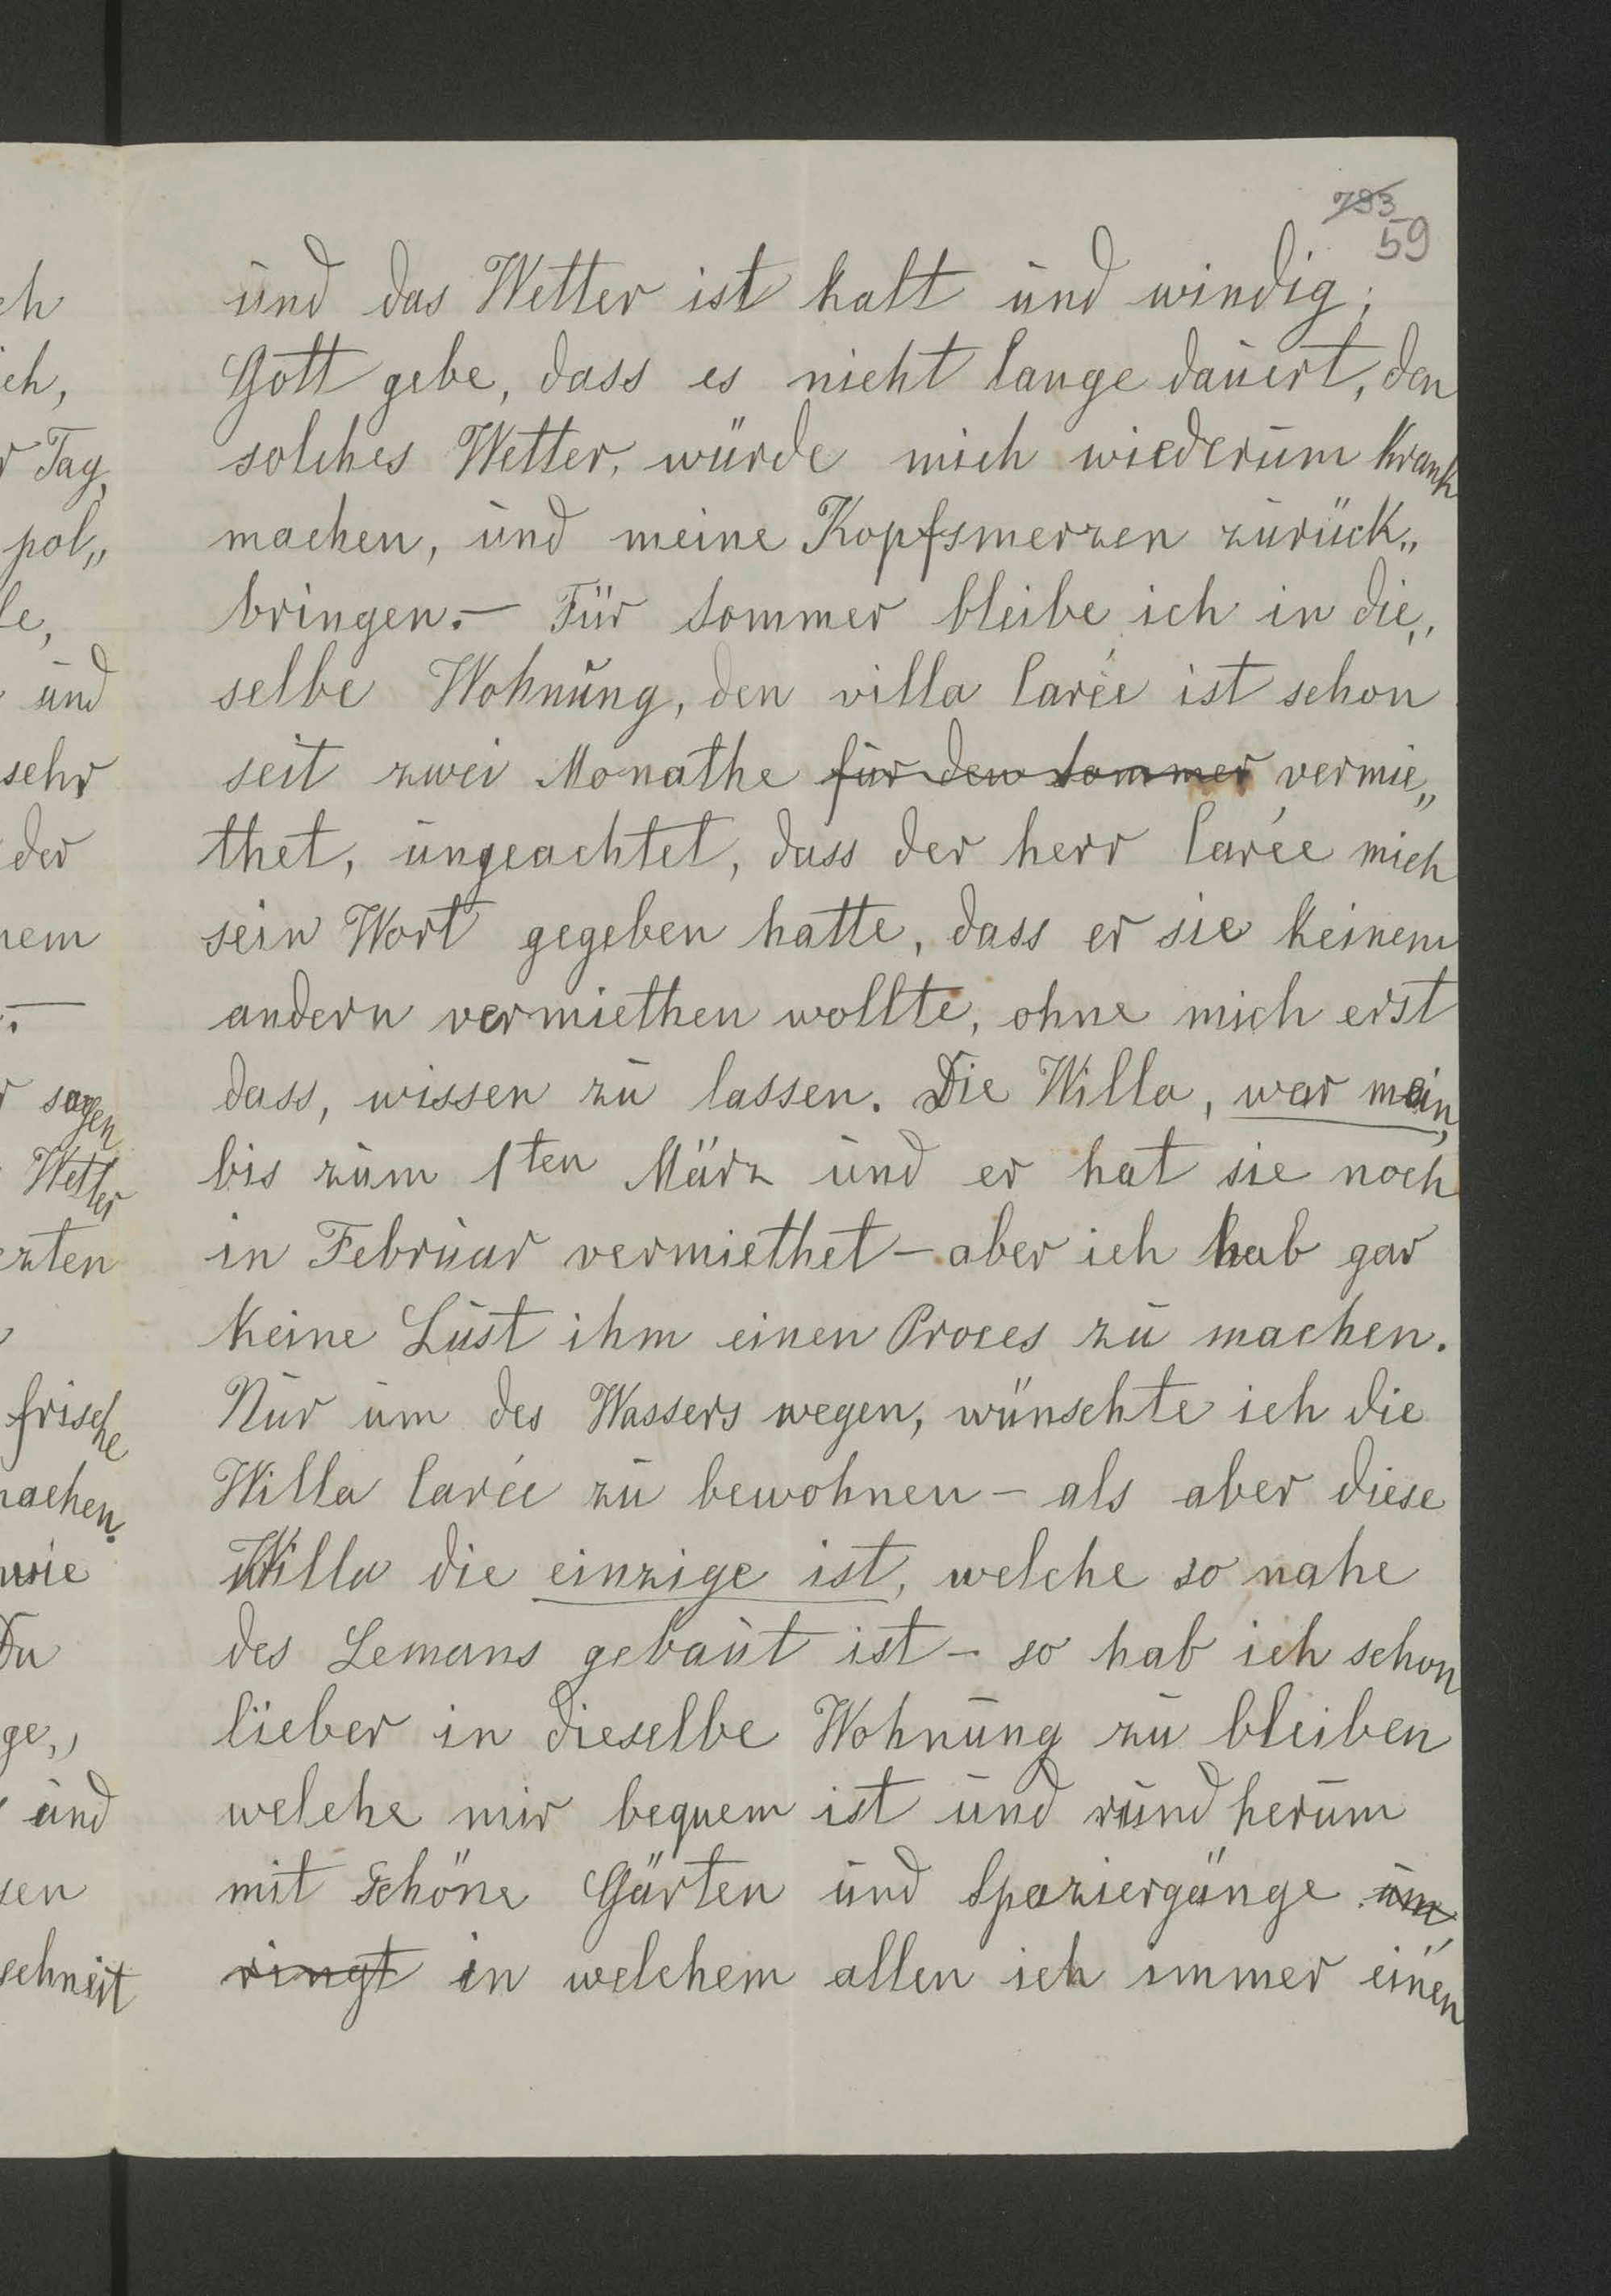 793
59
und das Wetter ist kalt und windig;
Gott gebe, dass es nicht lange dauert, den
solches Wetter, würde mich wiederum krank
machen, und meine Kopfsmerzen zurück„
bringen.— Für Sommer bleibe ich in die„
selbe Wohnung, den villa Carée ist schon
seit zwei Monathe für den Sommer vermie„
thet, ungeachtet, dass der herr Carée mich
sein Wort gegeben hatte, dass er sie keinem
andern vermiethen wollte, ohne mich erst
dass, wissen zu lassen. Die Willa, war mein,
bis zum 1ten März und er hat sie noch
in Februar vermiethet — aber ich hab gar
keine Lust ihm einen Proces zu machen.
Nur um des Wassers wegen, wünschte ich die
Willa Carée zu bewohnen — als aber diese
Willa die einzige ist, welche so nahe
des Lemans gebaut ist — so hab ich schon
lieber in dieselbe Wohnung zu bleiben
welche mir bequem ist und rund herum
mit schöne Gärten und Spaziergänge um
ringt in welchem allen ich immer einen
ch
ich,
r Tag,
pol„
le,
und
sehr
der
nem
.—
r sagen
Wetter
ezten
frische
machen.
wie
Du
ge„
und
sen
schneit